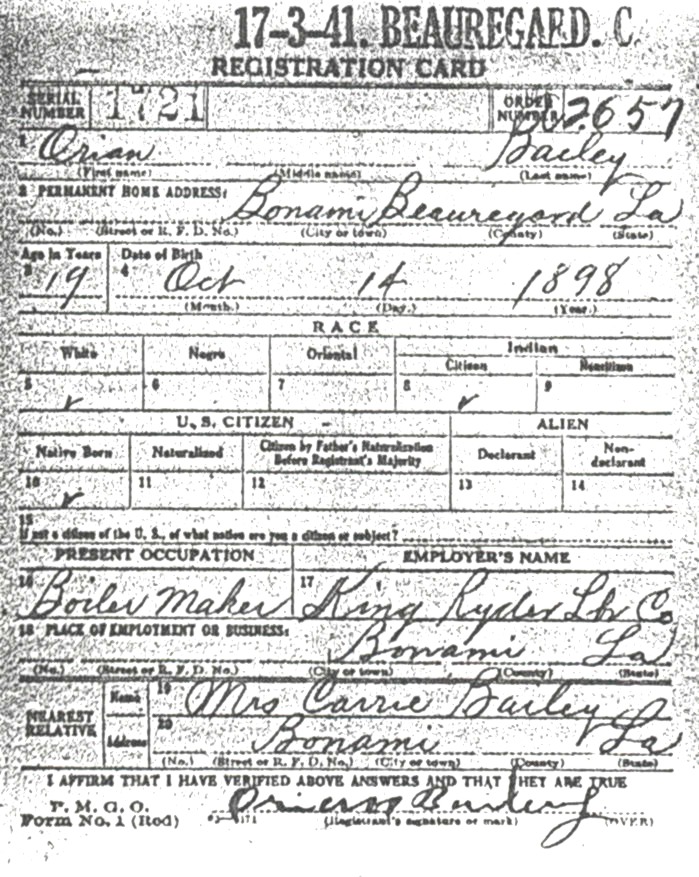 17-3-41. BEAUREGARD. C.
REGISTRATION CARD
SERIAL NUMBER 1721 ORDER NUMBER 2657
1 Orian Bailey
(First name) (Middle name) (Last name)
2 PERMANENT HOME ADDRESS: Bonami Beauregard La
(No.) (Street or R. F. D. No.) (City or town) (County) (State)
Age in Years Date of Birth
3 19 4 Oct 14 1898
(Month.) (Day.) (Year.)
RACE
White Negro Oriental Indian
Citizen Noncitizen
5 6 7 8 9
U. S. CITIZEN ALIEN
Native Born Naturalized Citizen by Father's Naturalization Before Registrant's Majority Declarant Non-declarant
10 11 12 13 14
15
If not a citizen of the U. S., of what nation are you a citizen or subject?
PRESENT OCCUPATION EMPLOYER'S NAME
16 Boiler Maker 17 King Ryder Lbr Co
18 PLACE OF EMPLOYMENT OR BUSINESS: Bonami La
(No.) (Street or R. F. D. No.) (City or town) (County) (State)
NEAREST RELATIVE Name 19 Mrs Carrie Bailey
Address 20 Bonami La
(No.) (Street or R. F. D. No.) (City or town) (County) (State)
I AFFIRM THAT I HAVE VERIFIED ABOVE ANSWERS AND THAT THEY ARE TRUE
P. M. G. O.
Form No. 1 (Red) (Registrant's signature or mark) (OVER)